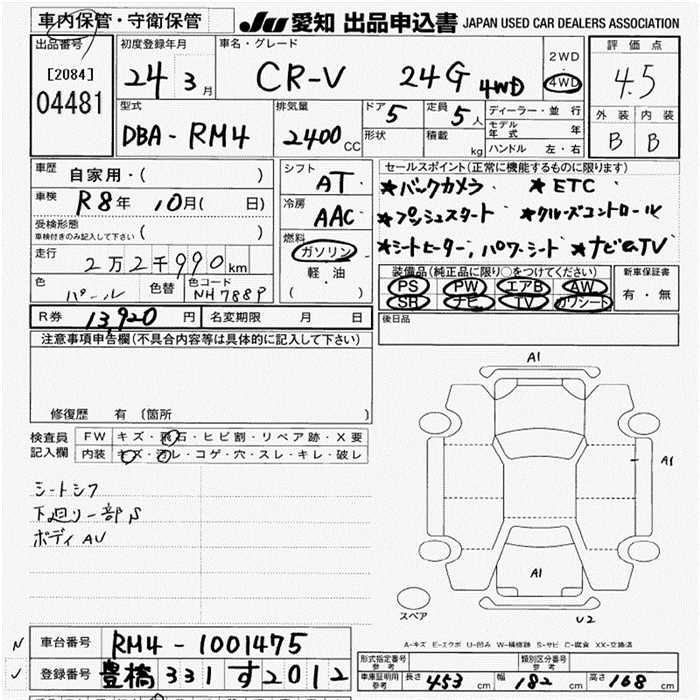 車内保管・守衛保管
JU 愛知 出品申込書 JAPAN USED CAR DEALERS ASSOCIATION
出品番号
[2084]
04481
初度登録年月
24 3月
車名・グレード
CR-V 24G 4WD
2WD
・
4WD
評価点
4.5
外装 内装
B B
型式
DBA-RM4
排気量
2400 CC
ドア 5
形状
定員 5人
積載 kg
ディーラー・並行
モデル年式 年
ハンドル 左・右
車歴 自家用・( )
車検 R8年 10月( 日)
受検形態
車検付きのみ記入して下さい ( )
走行 2万2千990km
色 パール 色替 色コード NH788P
シフト AT
冷房 AAC
燃料
ガソリン
軽油
( )
セールスポイント(正常に機能するものに限ります)
★バックカメラ ★ETC
★プッシュスタート ★クルーズコントロール
★シートヒーター,パワーシート ★ナビ&TV
装備品(純正品に限り○をつけてください)
PS PW エアB AW
SR ナビ TV カワシート
新車保証書
有・無
R券 13,920円 名変期限 月 日
後日品
注意事項申告欄(不具合内容等は具体的に記入して下さい)
修復歴 有 (箇所 )
検査員
記入欄
FW キズ・飛石・ヒビ割・リペア跡・X要
内装 キズ・汚レ・コゲ・穴・スレ・キレ・破レ
シートシワ
下廻り一部S
ボディAU
A1
A1
A1
U2
スペア
A-キズ E-エクボ U-凹み W-補修跡 S-サビ C-腐食 XX-交換済
N 車台番号 RM4-1001475
✓ 登録番号 豊橋 331 す 2012
形式指定番号
参考
類別区分番号
参考
車庫証明用
参考
長さ 453 cm 幅 182 cm 高さ 168 cm